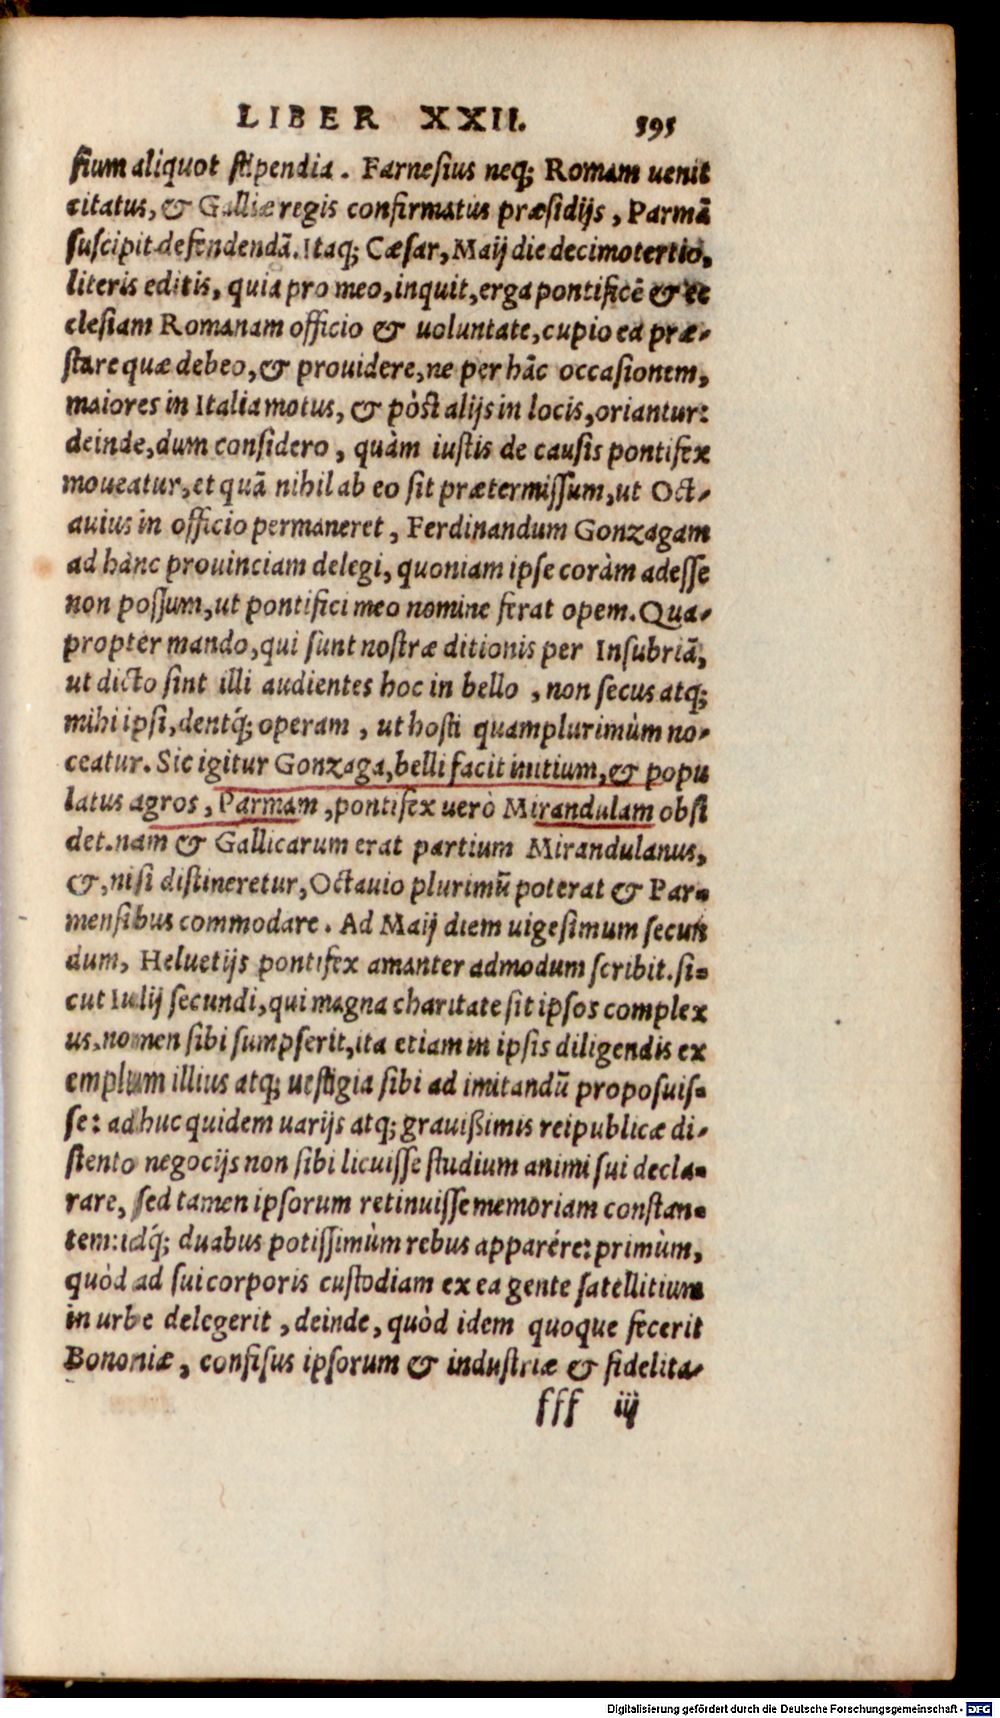 LIBER XXII. 595
sium aliquot stipendia. Farnesius neq; Romam uenit
citatus, & Galliæ regis confirmatus præsidijs, Parmā
suscipit defendendā. Itaq; Cæsar, Maij die decimotertio,
literis editis, quia pro meo, inquit, erga pontificē & ec
clesiam Romanam officio & uoluntate, cupio ea præ-
stare quæ debeo, & prouidere, ne per hāc occasionem,
maiores in Italia motus, & pòst alijs in locis, oriantur:
deinde, dum considero, quàm iustis de causis pontifex
moueatur, et quā nihil ab eo sit prætermissum, ut Oct-
auius in officio permaneret, Ferdinandum Gonzagam
ad hanc prouinciam delegi, quoniam ipse coràm adesse
non possum, ut pontifici meo nomine ferat opem. Qua-
propter mando, qui sunt nostræ ditionis per Insubriā,
ut dicto sint illi audientes hoc in bello, non secus atq;
mihi ipsi, dentq́; operam, ut hosti quamplurimùm no-
ceatur. Sic igitur Gonzaga, belli facit initium, & popu
latus agros, Parmam, pontifex uerò Mirandulam obsi
det. nam & Gallicarum erat partium Mirandulanus,
&, nisi distineretur, Octauio plurimū poterat & Par-
mensibus commodare. Ad Maij diem uigesimum secun
dum, Heluetijs pontifex amanter admodum scribit. si-
cut Iulij secundi, qui magna charitate sit ipsos complex
us, nomen sibi sumpserit, ita etiam in ipsis diligendis ex
emplum illius atq; uestigia sibi ad imitandū proposuis-
se: ad huc quidem uarijs atq; grauißimis reipublicæ di-
stento negocijs non sibi licuisse studium animi sui decla-
rare, sed tamen ipsorum retinuisse memoriam constan-
tem: idq́; duabus potissimùm rebus apparére: primùm,
quòd ad sui corporis custodiam ex ea gente satellitium
in urbe delegerit, deinde, quòd idem quoque fecerit
Bononiæ, confisus ipsorum & industriæ & fidelita-
fff iij
Digitalisierung gefördert durch die Deutsche Forschungsgemeinschaft - DFG